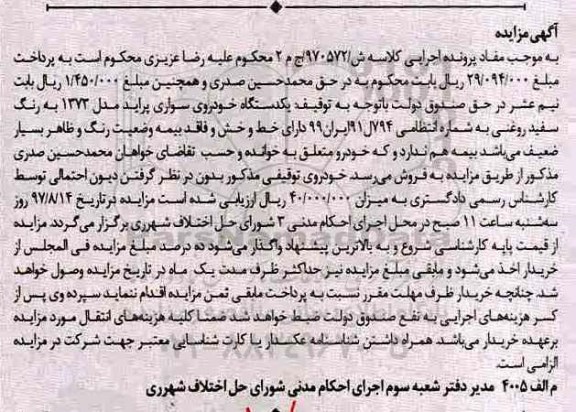 آگهی مزایده
به موجب مفاد پرونده اجرایی کلاسه ش/۹۷۰۵۷۲/ج م ۲ محکوم علیه رضا عزیزی محکوم است به پرداخت
مبلغ ۲۹/۰۹۴/۰۰۰ ریال بابت محکوم به در حق محمدحسین صدری و همچنین مبلغ ۱/۴۵۰/۰۰۰ ریال بابت
نیم عشر در حق صندوق دولت باتوجه به توقیف یکدستگاه خودروی سواری پراید مدل ۱۳۷۳ به رنگ
سفید روغنی به شماره انتظامی ۷۹۴ل۹۱ایران۹۹ دارای خط و خش و فاقد بیمه وضعیت رنگ و ظاهر بسیار
ضعیف می‌باشد بیمه هم ندارد و که خودرو متعلق به خوانده و حسب تقاضای خواهان محمدحسین صدری
مذکور از طریق مزایده به فروش می‌رسد. خودروی توقیفی مذکور بدون در نظر گرفتن دیون احتمالی توسط
کارشناس رسمی دادگستری به میزان ۴۰/۰۰۰/۰۰۰ ریال ارزیابی شده است مزایده در تاریخ ۹۷/۸/۱۴ روز
سه‌شنبه ساعت ۱۱ صبح در محل اجرای احکام مدنی ۳ شورای حل اختلاف شهرری برگزار می‌گردد. مزایده
از قیمت پایه کارشناسی شروع و به بالاترین پیشنهاد واگذار می‌شود ده درصد مبلغ مزایده فی المجلس از
خریدار اخذ می‌شود و مابقی مبلغ مزایده نیز حداکثر ظرف مدت یک ماه در تاریخ مزایده وصول خواهد
شد. چنانچه خریدار ظرف مهلت مقرر نسبت به پرداخت مابقی ثمن مزایده اقدام ننماید سپرده وی پس از
کسر هزینه‌های اجرایی به نفع صندوق دولت ضبط خواهد شد ضمنا کلیه هزینه‌های انتقال مورد مزایده
برعهده خریدار می‌باشد. همراه داشتن شناسنامه عکسدار یا کارت شناسایی معتبر جهت شرکت در مزایده
الزامی است.
م الف ۴۰۰۵ مدیر دفتر شعبه سوم اجرای احکام مدنی شورای حل اختلاف شهرری